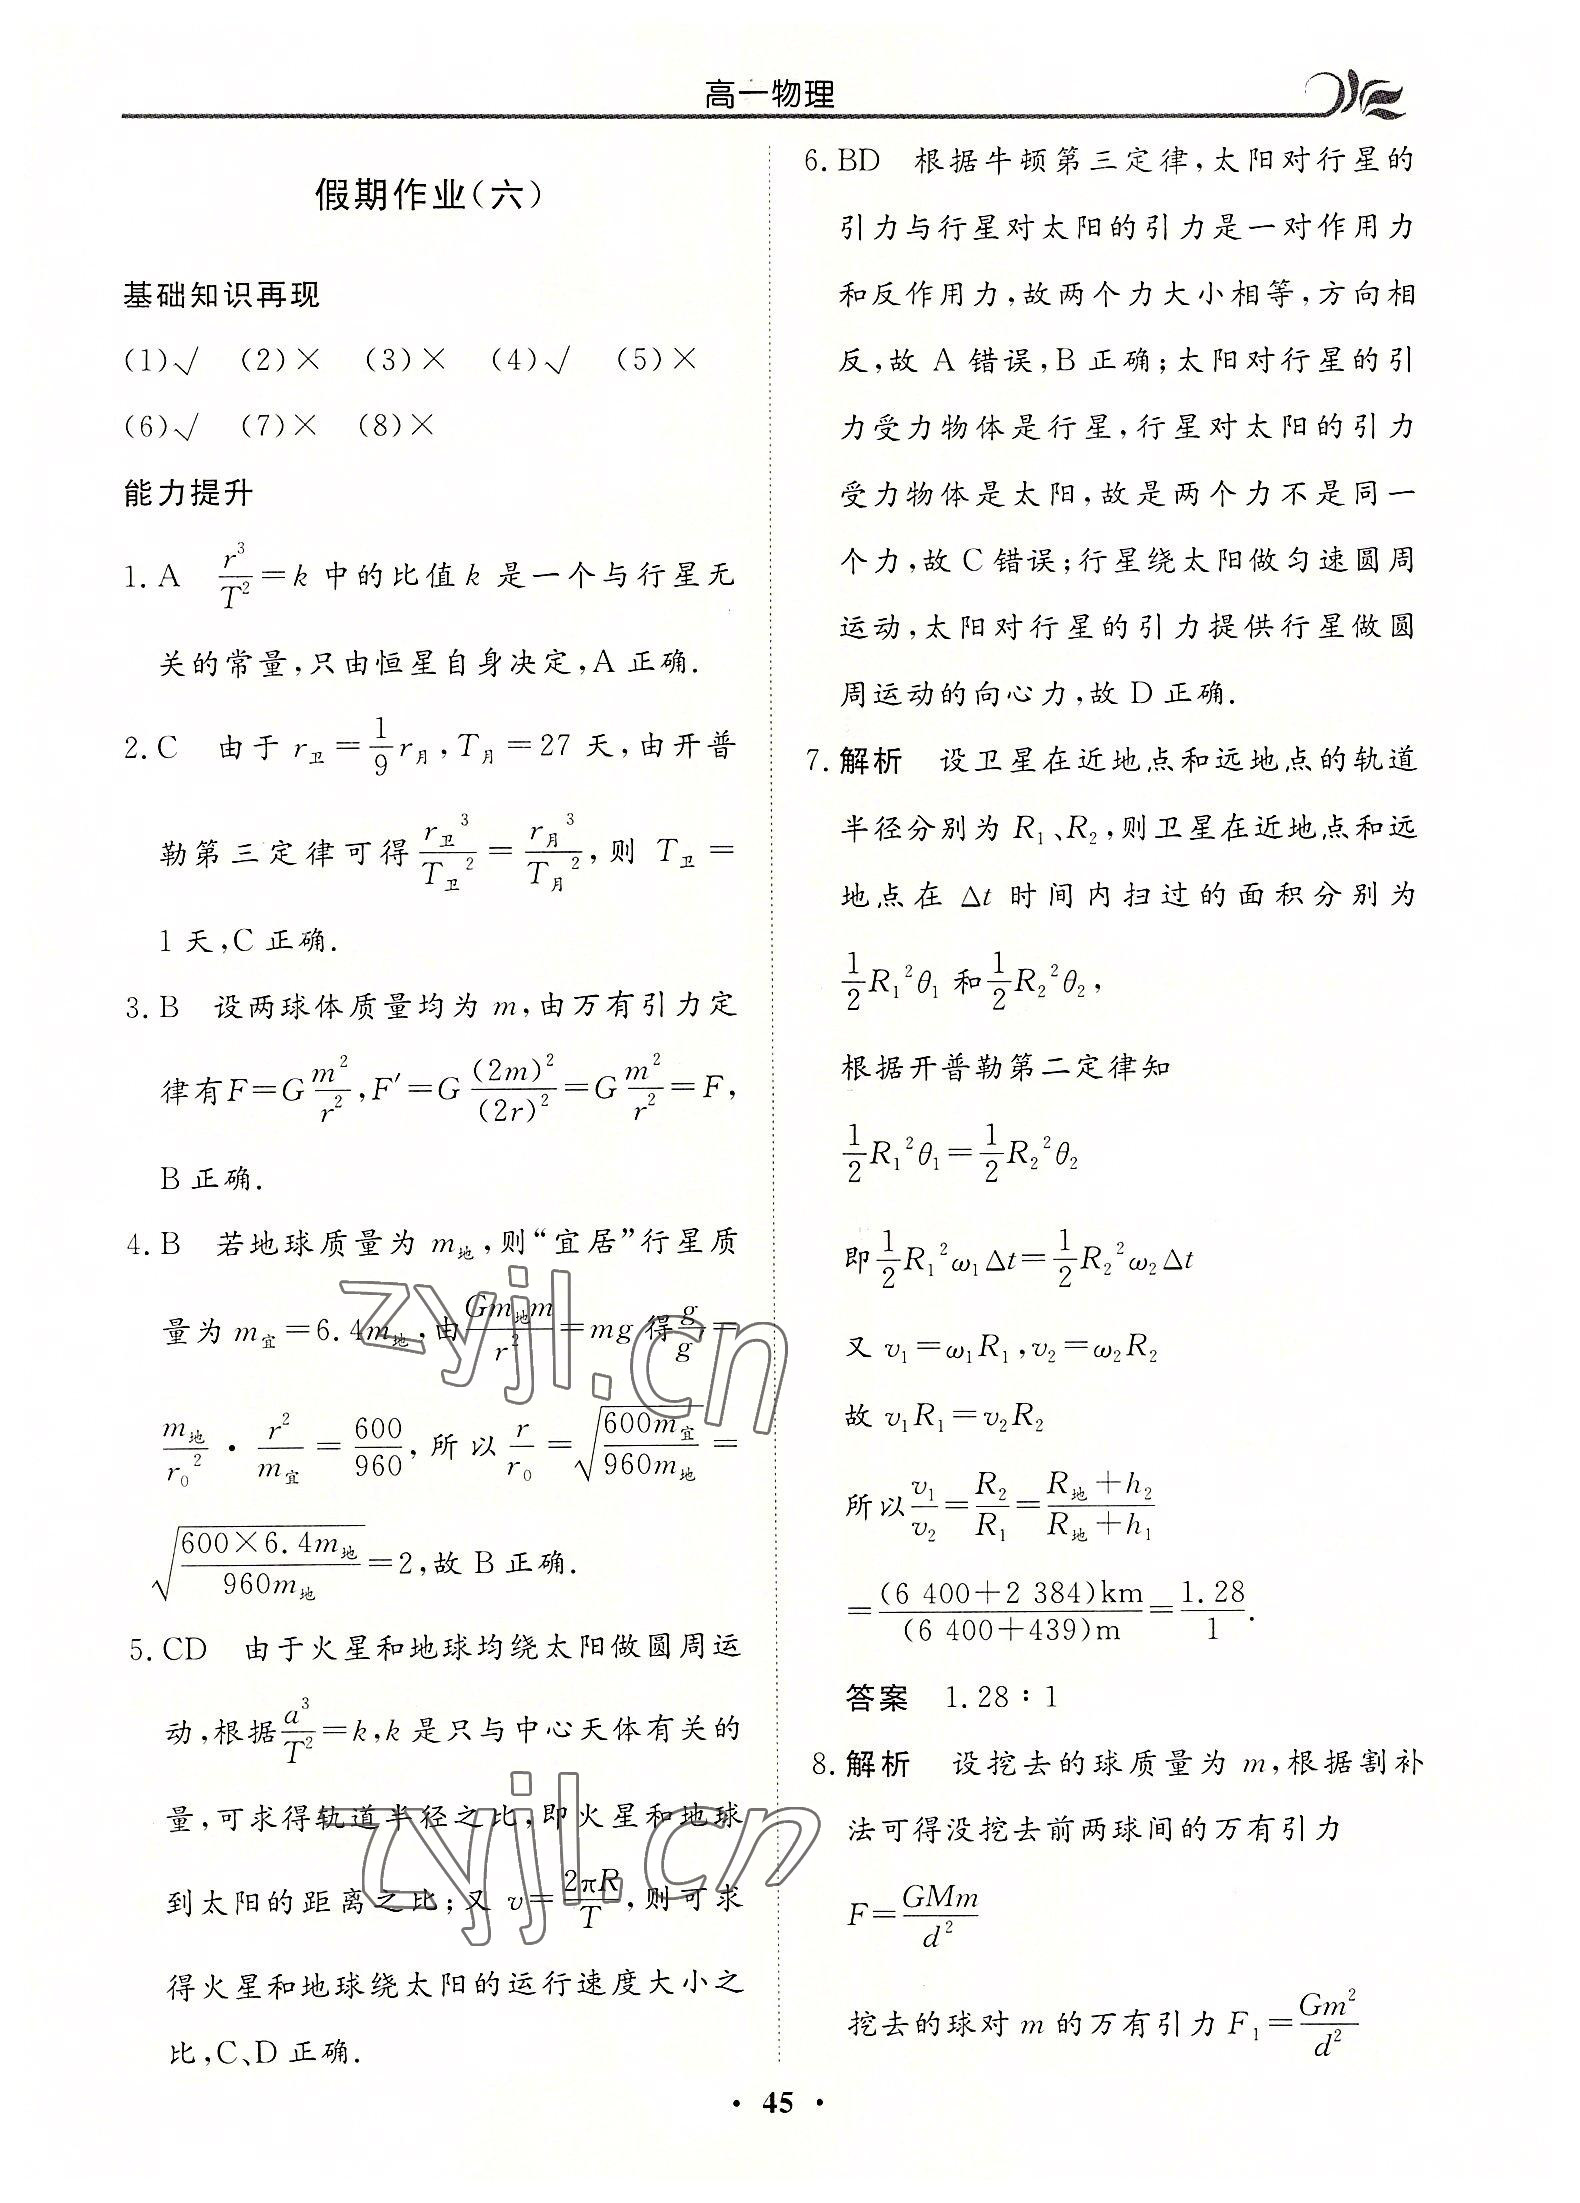 高一物理
假期作业(六)
基础知识再现
(1)√ (2)× (3)× (4)√ (5)×
(6)√ (7)× (8)×
能力提升
1. A r³/T²=k 中的比值 k 是一个与行星无
关的常量,只由恒星自身决定,A 正确.
2. C 由于 r卫=1/9 r月,T月=27 天,由开普
勒第三定律可得 r卫³/T卫²=r月³/T月²,则 T卫=
1 天,C 正确.
3. B 设两球体质量均为 m,由万有引力定
律有 F=G m²/r²,F′=G (2m)²/(2r)²=G m²/r²=F,
B 正确.
4. B 若地球质量为 m地,则“宜居”行星质
量为 m宜=6.4m地,由 Gm地m/r²=mg 得 g/g=
m地/r₀² · r²/m宜=600/960,所以 r/r₀=√(600m宜/960m地)=
√(600×6.4m地/960m地)=2,故 B 正确.
5. CD 由于火星和地球均绕太阳做圆周运
动,根据 a³/T²=k,k 是只与中心天体有关的
量,可求得轨道半径之比,即火星和地球
到太阳的距离之比;又 v=2πR/T,则可求
得火星和地球绕太阳的运行速度大小之
比,C、D 正确.
6. BD 根据牛顿第三定律,太阳对行星的
引力与行星对太阳的引力是一对作用力
和反作用力,故两个力大小相等,方向相
反,故 A 错误,B 正确;太阳对行星的引
力受力物体是行星,行星对太阳的引力
受力物体是太阳,故是两个力不是同一
个力,故 C 错误;行星绕太阳做匀速圆周
运动,太阳对行星的引力提供行星做圆
周运动的向心力,故 D 正确.
7. 解析 设卫星在近地点和远地点的轨道
半径分别为 R₁、R₂,则卫星在近地点和远
地点在 Δt 时间内扫过的面积分别为
1/2 R₁²θ₁ 和 1/2 R₂²θ₂,
根据开普勒第二定律知
1/2 R₁²θ₁=1/2 R₂²θ₂
即 1/2 R₁²ω₁Δt=1/2 R₂²ω₂Δt
又 v₁=ω₁R₁,v₂=ω₂R₂
故 v₁R₁=v₂R₂
所以 v₁/v₂=R₂/R₁=(R地+h₂)/(R地+h₁)
=(6 400+2 384)km/(6 400+439)m=1.28/1.
答案 1.28∶1
8. 解析 设挖去的球质量为 m,根据割补
法可得没挖去前两球间的万有引力
F=GMm/d²
挖去的球对 m 的万有引力 F₁=Gm²/d²
· 45 ·
zyjl.cn
zyjl.cn